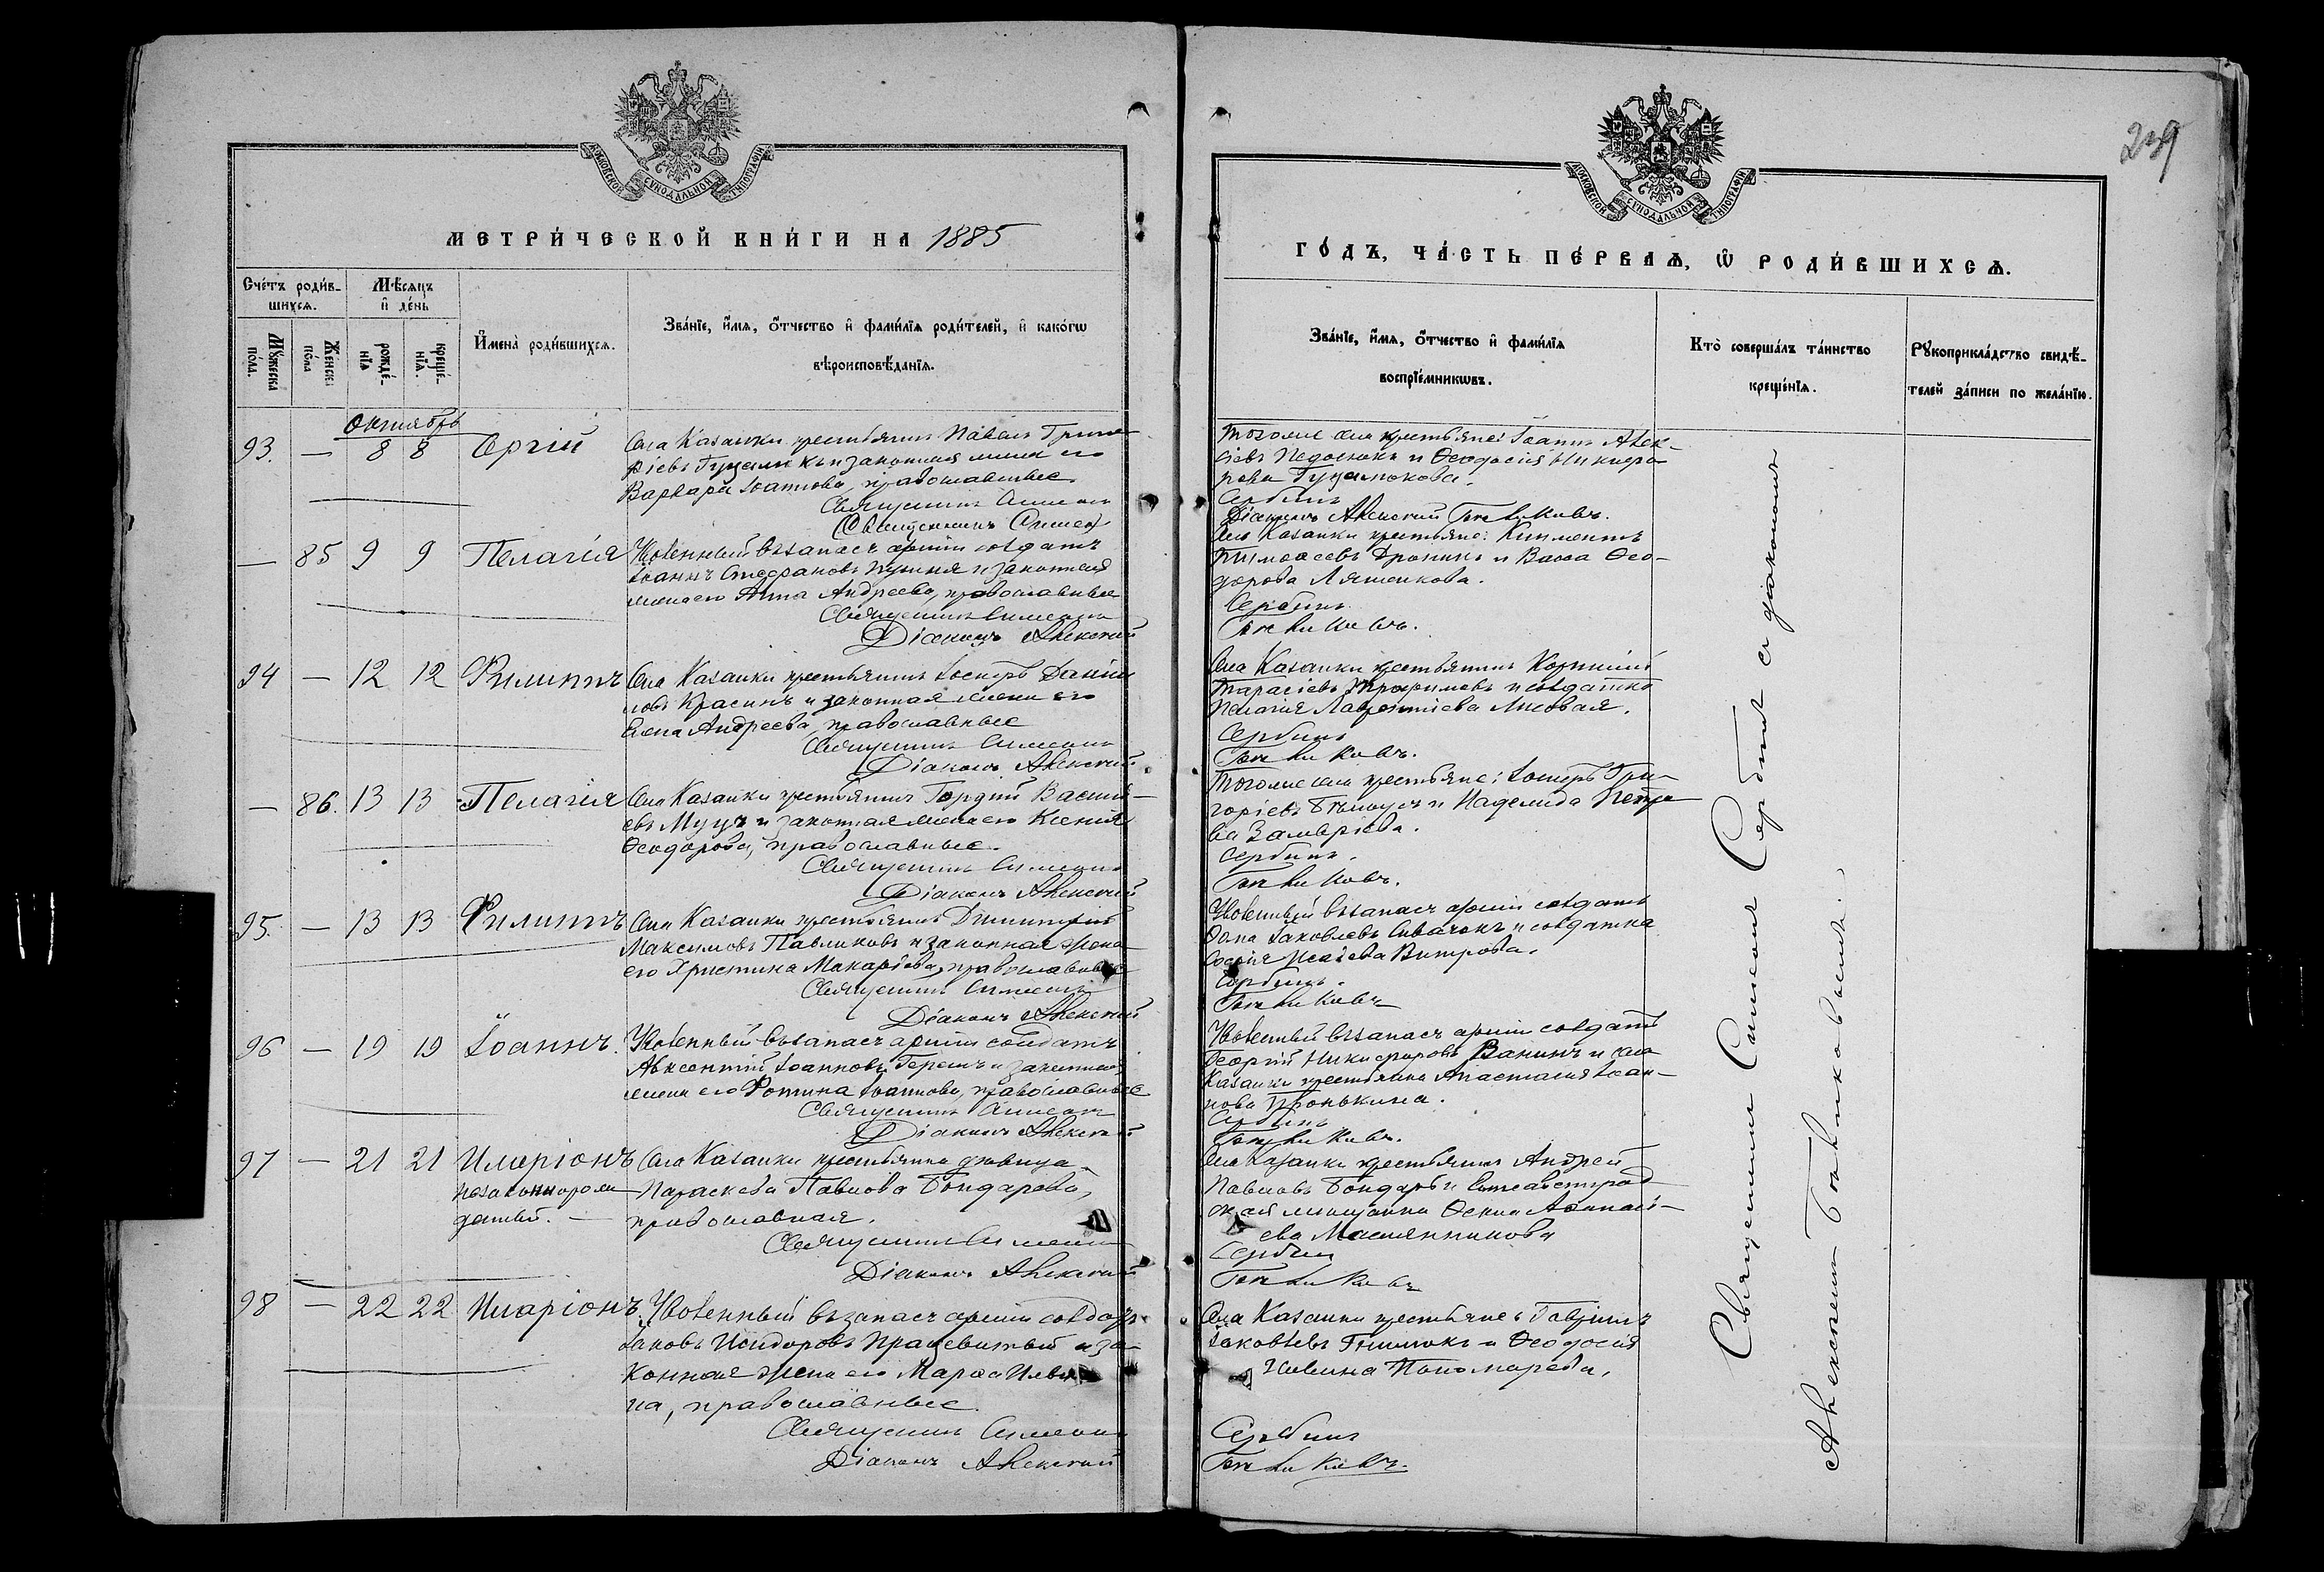 239
МОСКОВСКОЙ СУНОДАЛЬНОЙ ТИПОГРАФІИ
МЕТРИ́ЧЕСКОЙ КНИ́ГИ НА 1885
Сче́тъ роди́в-
шихсѧ.
Мѣ́сѧцъ
и҆ де́нь
Мꙋ́жеска
по́ла.
Же́нска
по́ла
рожде́-
нїѧ
креще́-
нїѧ.
И҆мена̀ роди́вшихсѧ.
Зва́нїе, и҆́мѧ, ѻ҆́тчество и҆ фами́лїѧ роди́телей, и҆ како́гѡ
вѣроисповѣ́данїѧ.
Октябрь
93. — 8 8 Сергій
Села Казанки крестьянинъ Павелъ
и законная жена его
Варвара Іоаннова, православные.
Священникъ Симеонъ
(Священникъ Симеон)
— 85 9 9 Пелагія
Уволенный въ запасъ арміи солдатъ
Іоаннъ Стефановъ и законная
жена его Анна Андреева, православные
Священникъ Симеонъ
Діаконъ Алексѣй
94 — 12 12 Филиппъ
Села Казанки крестьянинъ Іосифъ Даніи
ловъ Красинъ и законная жена его
Елена Андреева, православные
Священникъ Симеонъ
Діаконъ Алексѣй
— 86. 13 13 Пелагія
Села Казанки крестьянинъ Гордій Василь-
евъ Муцъ и законная жена его Ксенія
Ѳеодорова, православные.
Священникъ Симеонъ
Діаконъ Алексѣй
95. — 13 13 Филиппъ
Села Казанки крестьянинъ Димитрій
Максимовъ Павликовъ и законная жена
его Христина Макаріева, православные
Священникъ Симеонъ
Діаконъ Алексѣй
96 — 19 19 Іоаннъ.
Уволенный въ запасъ арміи солдатъ
Авксентій Іоанновъ и законная
жена его Фотина Іоаннова, православные
Священникъ Симеонъ
Діаконъ Алексѣй
97 — 21 21 Иларіонъ
незаконнорож
денный. —
Села Казанки крестьянка дѣвица
Параскева Павлова Бондарева,
православная.
Священникъ Симеонъ
Діаконъ Алексѣй
98 — 22 22 Иларіонъ.
Уволенный въ запасъ арміи солдатъ
Іаковъ Исидоровъ и за-
конная жена его Марѳа Ильи
на, православные
Священникъ Симеонъ
Діаконъ Алексѣй
МОСКОВСКОЙ СУНОДАЛЬНОЙ ТИПОГРАФІИ
ГО́ДЪ, ЧА́СТЬ ПЕ́РВАѦ, Ѡ҆ РОДИ́ВШИХСѦ.
Зва́нїе, и҆́мѧ, ѻ҆́тчество и҆ фами́лїѧ
воспрїе́мникѡвъ.
Кто̀ соверша́лъ та́инство
креще́нїѧ.
Рꙋкоприкла́дство свидѣ́-
телей за́писи по жела́нїю.
Тогоже села крестьяне: Іоаннъ Алек-
сіевъ и Ѳеодосія Никифо
рова
Сербинъ
Діаконъ Алексѣй
Села Казанки крестьяне: Климентъ
Тимоѳеевъ Дронинъ и Васса Ѳео-
дорова Ляшенкова.
Сербинъ
Села Казанки крестьянинъ Корнилій
Тарасіевъ и солдатка
Пелагія Лаврентіева Лисовая.
Сербинъ
Тогоже села крестьяне: Іосифъ Гри-
горіевъ и Надежда Петро
ва
Сербинъ.
Уволенный въ запасъ арміи солдатъ
Ѳома Іаковлевъ и солдатка
Софія Исаіева
Сербинъ.
Уволенный въ запасъ арміи солдатъ
Георгій Никифоровъ Ванинъ и села
Казанки крестьянка Анастасія Іоан-
нова Пронькина.
Сербинъ
Села Казанки крестьянинъ Андрей
Павловъ Бондарь и
мѣщанка Аѳанасі-
ева Масленникова
Сербинъ
Села Казанки крестьяне: Гавріилъ
Іаковлевъ и Ѳеодосія
Пономарева.
Сербинъ
Священникъ Симеонъ Сербинъ съ діакономъ